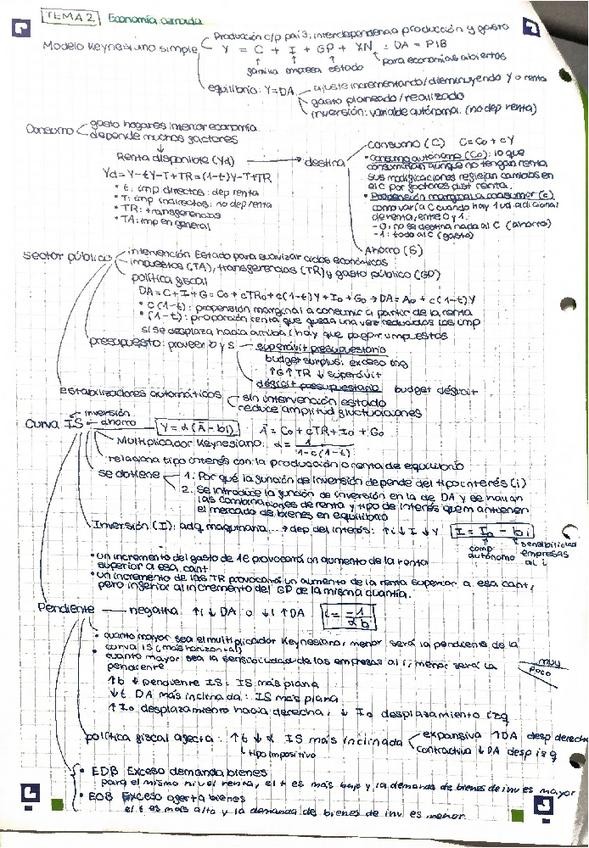 TEMA 2 Economía cerrada
Producción c/p país, interdependencia producción y gasto
Modelo Keynesiano simple
Y = C + I + GP + XN = DA = PIB
familia empresa estado para economías abiertas
equilibrio: Y=DA
ajuste incrementando/disminuyendo Y o renta
gasto planeado/realizado
inversión: variable autónoma (no dep renta)
Consumo
gasto hogares interior economía
depende muchos factores
Renta disponible (Yd) → destina
Yd=Y-tY-T+TR=(1-t)Y-T+TR
• t: imp directos: dep renta
• T: imp indirectos: no dep renta
• TR: transferencias
• TA: imp en general
Consumo (C) C=Co+cY
• Consumo autónomo (Co): lo que
consumirían aunque no tengan renta
sus modificaciones reflejan cambios en
el C por factores dist renta.
• Propensión marginal a consumir (c)
como varía C cuando hay 1 ud adicional
de renta, entre 0 y 1.
-0: no se destina nada al C (ahorro)
-1: todo al C (gasto)
Ahorro (S)
Sector público
intervención Estado para suavizar ciclos económicos
impuestos (TA), transferencias (TR) y gasto público (GP)
política fiscal
DA=C+I+G=Co+cTRo+c(1-t)Y+Io+Go → DA=Ao+c(1-t)Y
• c(1-t): propensión marginal a consumir a partir de la renta
• (1-t): proporción renta que queda una vez deducidos los imp
si se desplaza hacia arriba (hay que pagar impuestos
presupuesto: proveer b y s
superávit presupuestario
budget surplus: exceso ing
↑G ↑TR ↓ superávit
déficit presupuestario budget déficit
estabilizadores automáticos
sin intervención estado
reduce amplitud fluctuaciones
Curva IS
inversión
ahorro
Y = α(Ā - bi) Ā = Co + cTR + Io + Go
Multiplicador Keynesiano: α = 1/1-c(1-t)
relaciona tipo interés con la producción o renta de equilibrio
se obtiene
1. Por qué la función de inversión depende del tipo interés (i)
2. Se introduce la función de inversión en la de DA y se hallan
las combinaciones de renta y tipo de interés que mantienen
el mercado de bienes en equilibrio
Inversión (I): adq maquinaria... → dep del interés: ↑i ↓I ↓Y I = Io - bi
comp autónomo
sensibilidad empresas al i
• un incremento del gasto de 1€ provocará un aumento de la renta
superior a esa cant
• un incremento de las TR provocará un aumento de la renta superior a esa cant,
pero inferior al incremento del GP de la misma cuantía.
Pendiente — negativa ↑i ↓DA o ↓i ↑DA i = -1/αb
• cuanto mayor sea el multiplicador Keynesiano, menor será la pendiente de la
curva IS (más horizontal)
• cuanto mayor sea la sensibilidad de las empresas al i, menor será la
pendiente
muy
poco
↑b ↓ pendiente IS: IS más plana
↓t DA más inclinada: IS más plana
↑Io desplazamiento hacia derecha, ↓ Io desplazamiento izq
política fiscal afecta: ↑t ↓α IS más inclinada
↳ tipo impositivo
expansiva ↑DA desp derecha
contractiva ↓DA desp izq
• EDB Exceso demanda bienes
para el mismo nivel renta, el t es más bajo y la demanda de bienes de inv es mayor
• EOB Exceso oferta bienes
el t es más alto y la demanda de bienes de inv es menor.